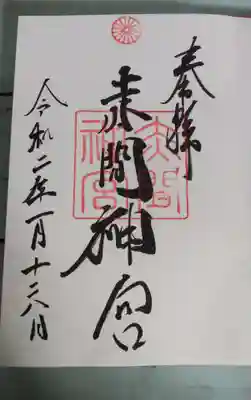 奉拝
赤間神宮
赤間
神宮
令和二年一月十六日